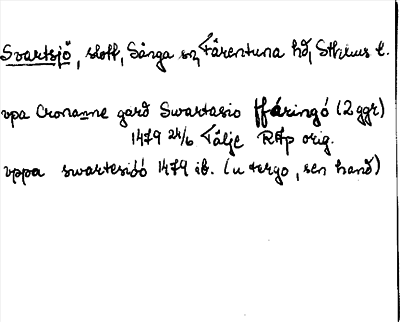 Svartsjö, slott, Sånga sn, Färentuna hd, Sthlms l.
vpa Cronanne gard Swartasio ffäringó (2 ggr)
1479 24/6 Tälje RAp orig.
vppa swartesióó 1479 ib. (a tergo, sen hand)